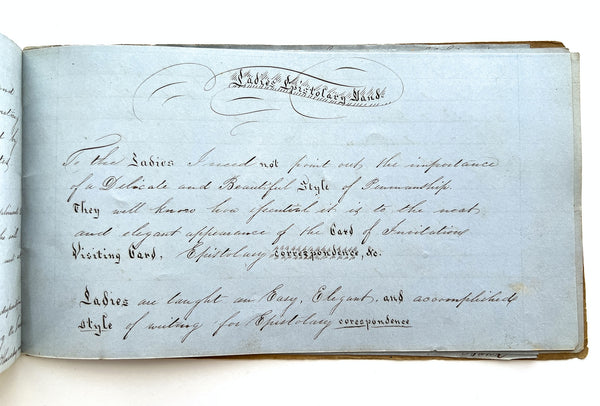 Ladies Epistolary Hand
To the Ladies I need not point out, the importance
of a Delicate and Beautiful Style of Penmanship.
They will know how essential it is to the neat
and elegant appearance of the Card of Invitations
Visiting Card, Epistolary correspondence, &c.
Ladies are taught an Easy, Elegant, and accomplished
style of writing for Epistolary corespondence